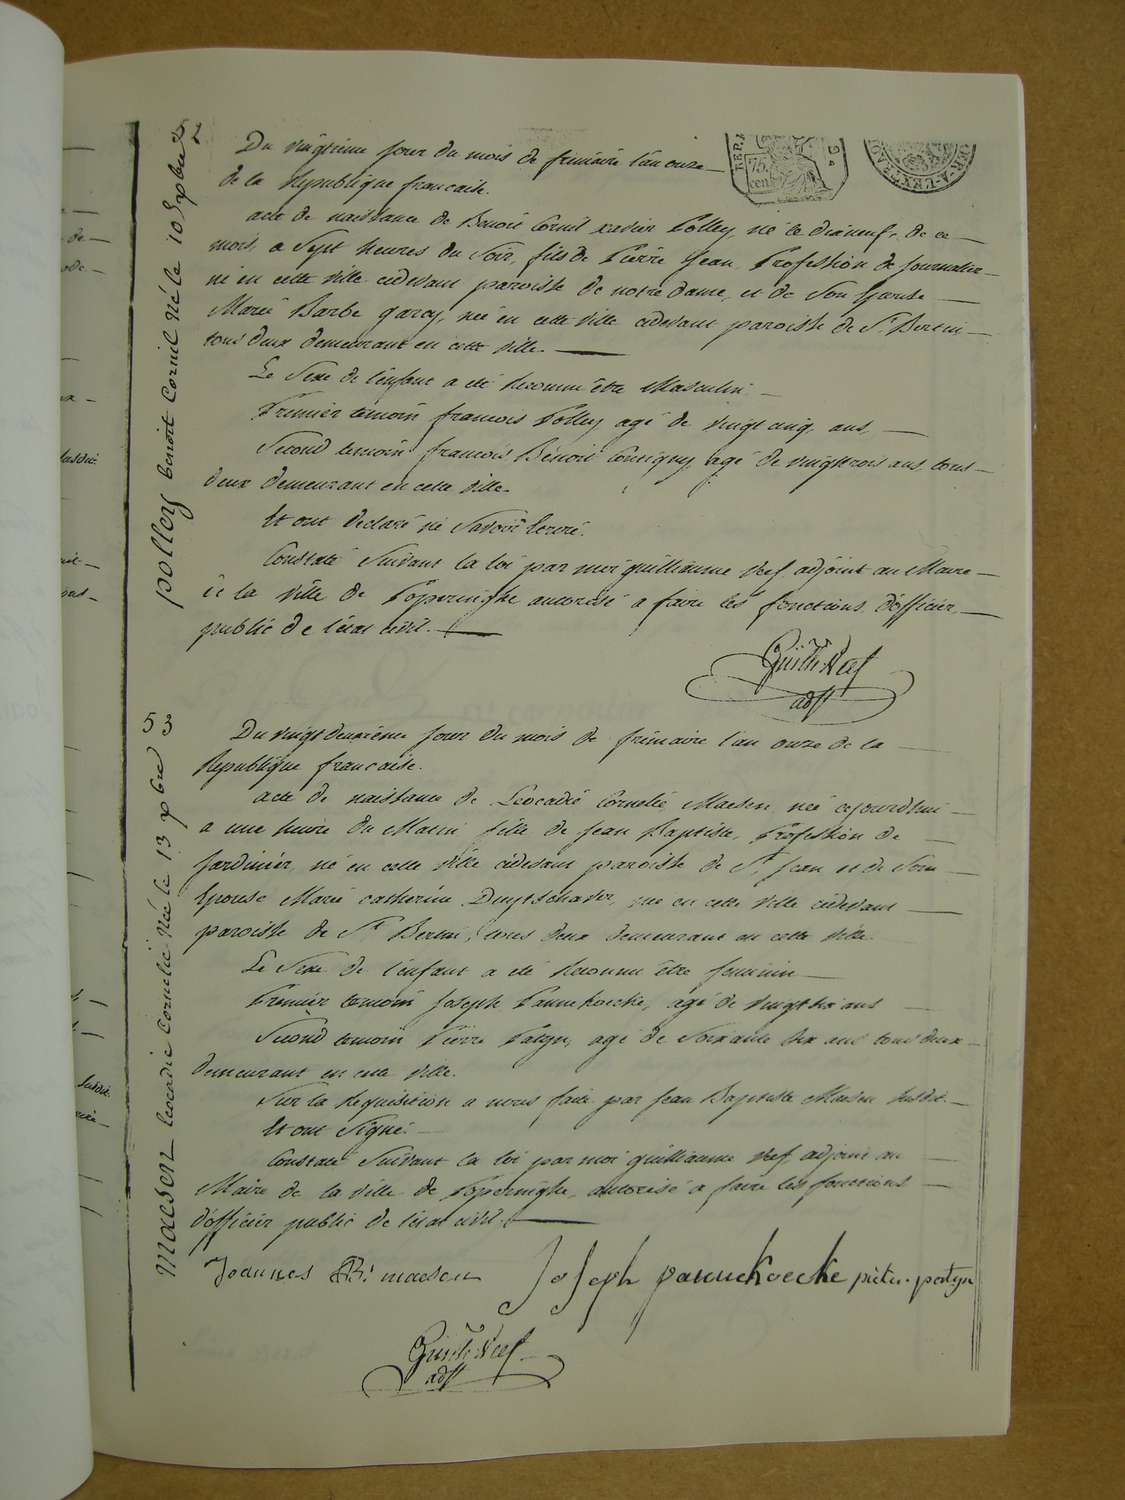 52
polley benoit Cornil Né le 10 Xbre
Du vingtieme jour du mois de frimaire l'an onze
de la Republique francaise.
acte de naissance de Benoit Cornil xavier Polley, né le dixneuf, de ce
mois, a Sept heures du Soir, fils de Pierre Jean, Profession de Journalier
né en cette ville cidevant paroisse de notre dame, et de Son Epouse
Marie Barbe garcy, née en cette ville cidevant paroisse de St Bertin
tous deux demeurant en cette ville.
Le Sexe de l'enfant a été Reconnu être Masculin.
Premier temoin francois Polley agé de vingt cinq ans,
Second temoin francois Benoit agé de vingttrois ans tous
deux demeurant en cette ville.
Et ont declaré ne Savoir Ecrire.
Constaté Suivant la loi par moi guilliaume Neef adjoint au Maire
de la ville de Poperinghe autorisé a faire les fonctions d'officier
public de l'état civil.
Guill: Neef
adjt
53
Maesen leocadie Cornelie Née le 13 Xbre
Du vingtdeuxieme jour du mois de frimaire l'an onze de la
Republique francaise.
acte de naissance de Leocadie Cornelie Maesen, née cejourd'hui
a une heure du Matin fille de Jean Baptiste, Profession de
Jardinier, né en cette ville cidevant paroisse de St Jean et de Son
Epouse Marie catherine Duytschaver, née en cette ville cidevant
paroisse de St Bertin, tous deux demeurant en cette ville.
Le Sexe de l'enfant a été Reconnu être feminin
Premier temoin Joseph Pannekoecke, agé de ans
Second temoin Pierre agé de Soixante Six ans tous deux
demeurant en cette ville.
Sur la Requisition a nous faite par Jean Baptiste Maesen Susdit.
Et ont Signé.
Constaté Suivant la loi par moi guilliaume Neef adjoint au
Maire de la ville de Poperinghe autorisé a faire les fonctions
d'officier public de l'état civil.
Joannes B: maesen Joseph pannekoecke pieter
Guill: Neef
adjt